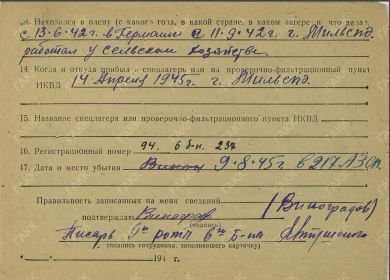 13. Находился в плену (с какого года, в какой стране, в каком лагере и что делал)
с 13.6.42г. в Германии с 11.9.42г. г. Тильзд.
работал у сельском хозяйстве.
14. Когда и откуда прибыл в спецлагерь или на проверочно-фильтрационный пункт
НКВД 14 Апреля 1945г. г. Тильзд.
15. Название спецлагеря или проверочно-фильтрационного пункта НКВД
16. Регистрационный номер 94. 6 б-н. 237
17. Дата и место убытия 9.8.45г. в 217 АЗСП
Правильность записанных на меня сведений (Виноградов)
подтверждаю
(подпись)
Писарь роты Б-на
(подпись сотрудника, заполнившего карточку)
194 г.